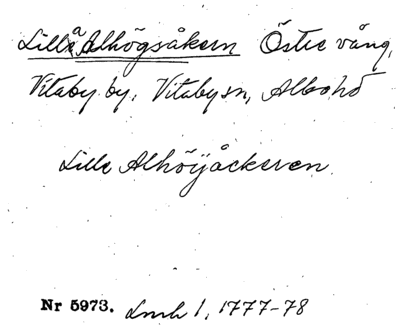 Lilla Alhögsåkern Öster vång,
Vitaby by, Vitaby sn, Albo hd
Lille Alhöijåckeren.
Nr 5973. Lmh 1, 1777-78